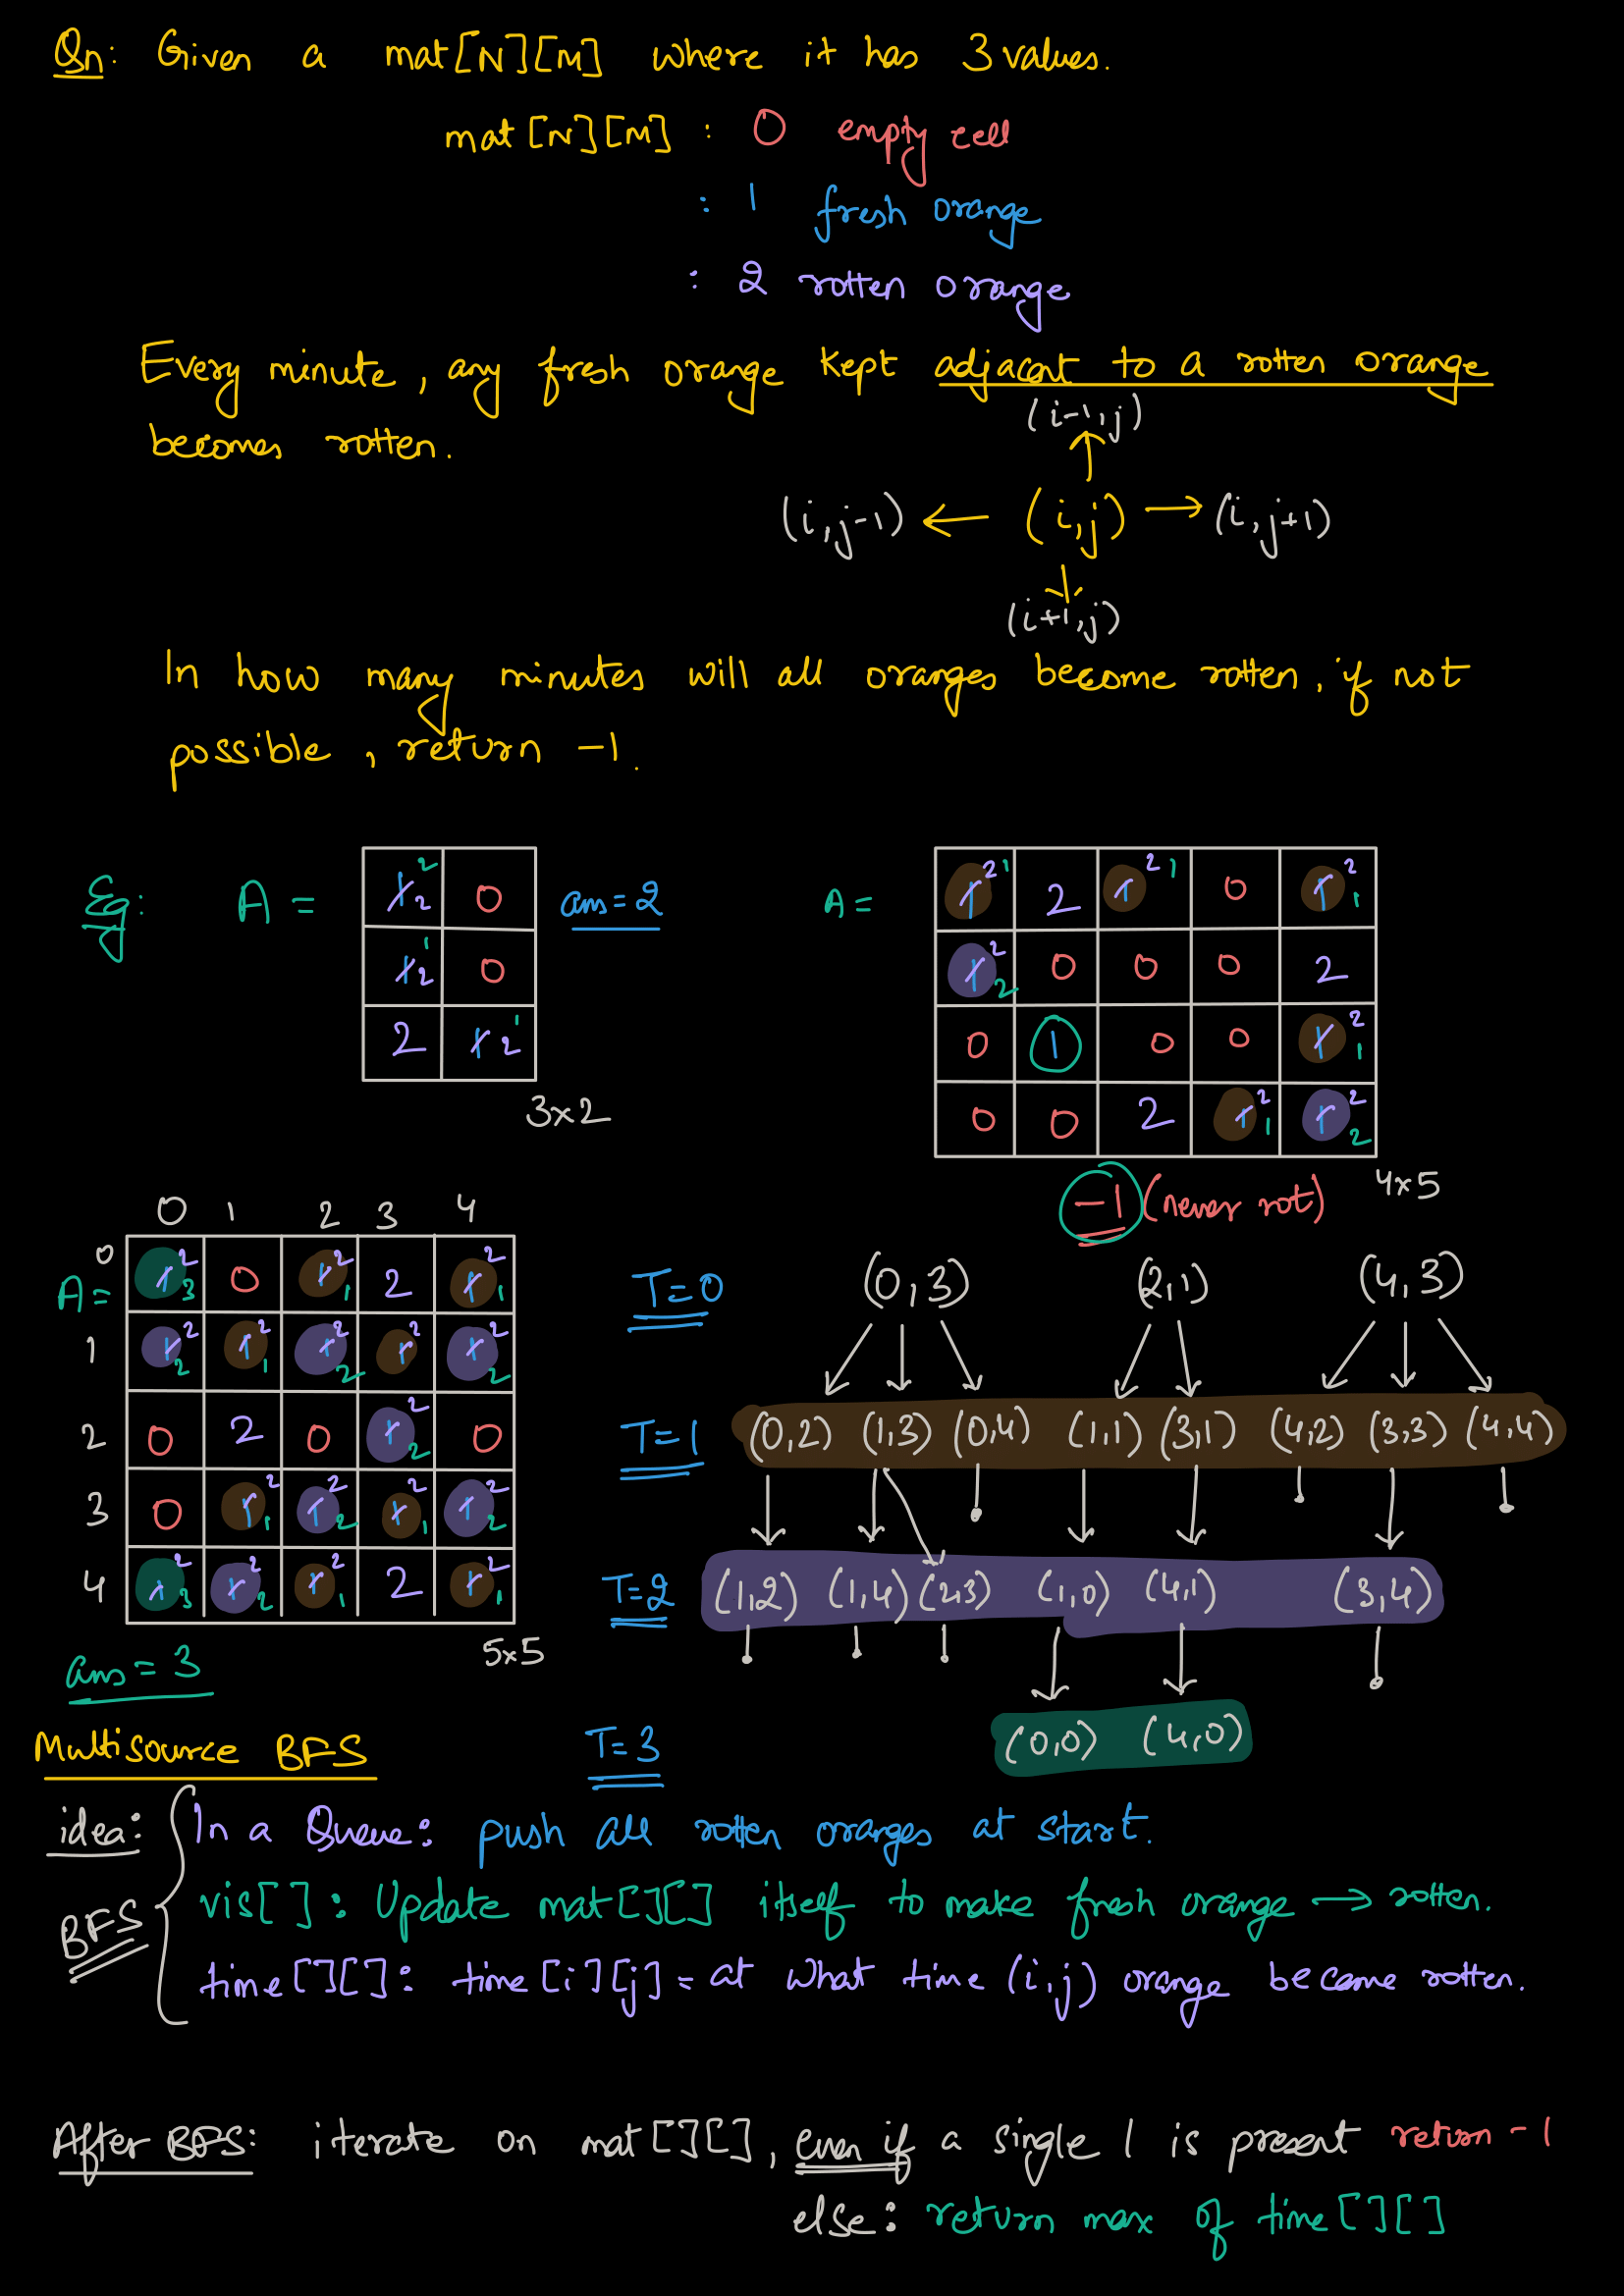 Qn: Given a mat[N][M] where it has 3 values.
mat[N][M] : 0 empty cell
: 1 fresh orange
: 2 rotten orange
Every minute, any fresh orange kept adjacent to a rotten orange
becomes rotten.
(i-1,j)
(i,j-1) ← (i,j) → (i,j+1)
(i+1,j)
In how many minutes will all oranges become rotten, if not
possible, return -1.
Eg: A =
1 2 2 0
1 2 1 0
2 1 2 1
ans = 2
3x2
A =
1 2 1 2 1 2 1 0 1 2 1
1 2 2 0 0 0 2
0 1 0 0 1 2 1
0 0 2 1 2 1 1 2 2
-1 (never rot)
4x5
0 1 2 3 4
A =
0 1 2 3 0 1 2 1 2 1 2 1
1 1 2 2 1 2 1 1 2 2 1 2 1 2 2
2 0 2 0 1 2 2 0
3 0 1 2 1 1 2 2 1 2 1 1 2 2
4 1 2 3 1 2 2 1 2 1 2 1 2 1
ans = 3
5x5
T=0 (0,3) (2,1) (4,3)
T=1 (0,2) (1,3) (0,4) (1,1) (3,1) (4,2) (3,3) (4,4)
T=2 (1,2) (1,4) (2,3) (1,0) (4,1) (3,4)
T=3 (0,0) (4,0)
Multisource BFS
idea: In a Queue: push all rotten oranges at start.
BFS vis[]: Update mat[][] itself to make fresh orange → rotten.
time[][]: time[i][j] = at what time (i,j) orange became rotten.
After BFS: iterate on mat[][], even if a single 1 is present return -1
else: return max of time[][]